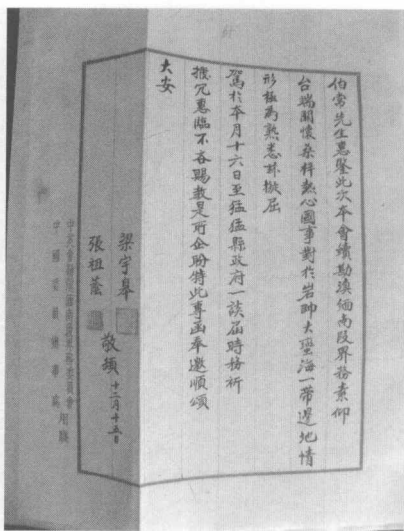 伯常先生惠鑒此次本會續勘滇緬南段界務素仰
台端關懷桑梓熱心國事對於岩帥大蠻海一帶邊地情
形極為熟悉玆擬屈
駕於本月十六日至猛猛縣政府一談屆時務祈
撥冗惠臨不吝賜教是所企盼特此專函奉邀順頌
大安
梁宇皋
張祖蔭
敬頌 十二月十五日
中英會勘滇緬南段界務委員會
中國委員辦事處用牋